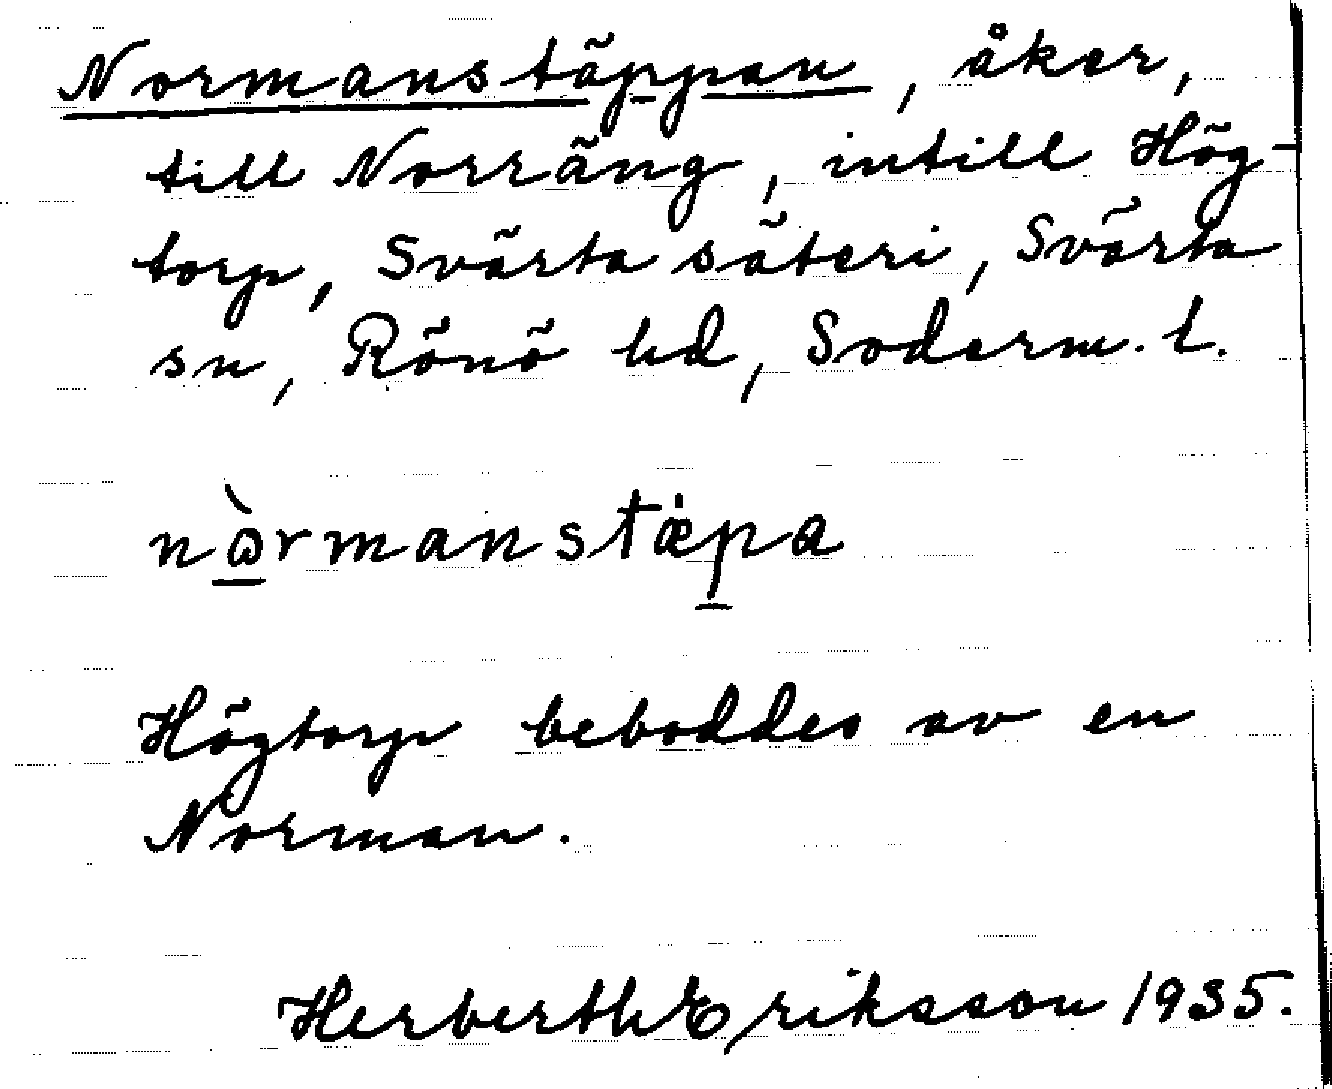 Normanstäppan, åker,
till Norräng, intill Hög-
torp, Svärta säteri, Svärta
sn, Rönö hd, Söderm. l.
nɷ̀rmanstæ̇pa
Högtorp beboddes av en
Norman.
Herberth Eriksson 1935.